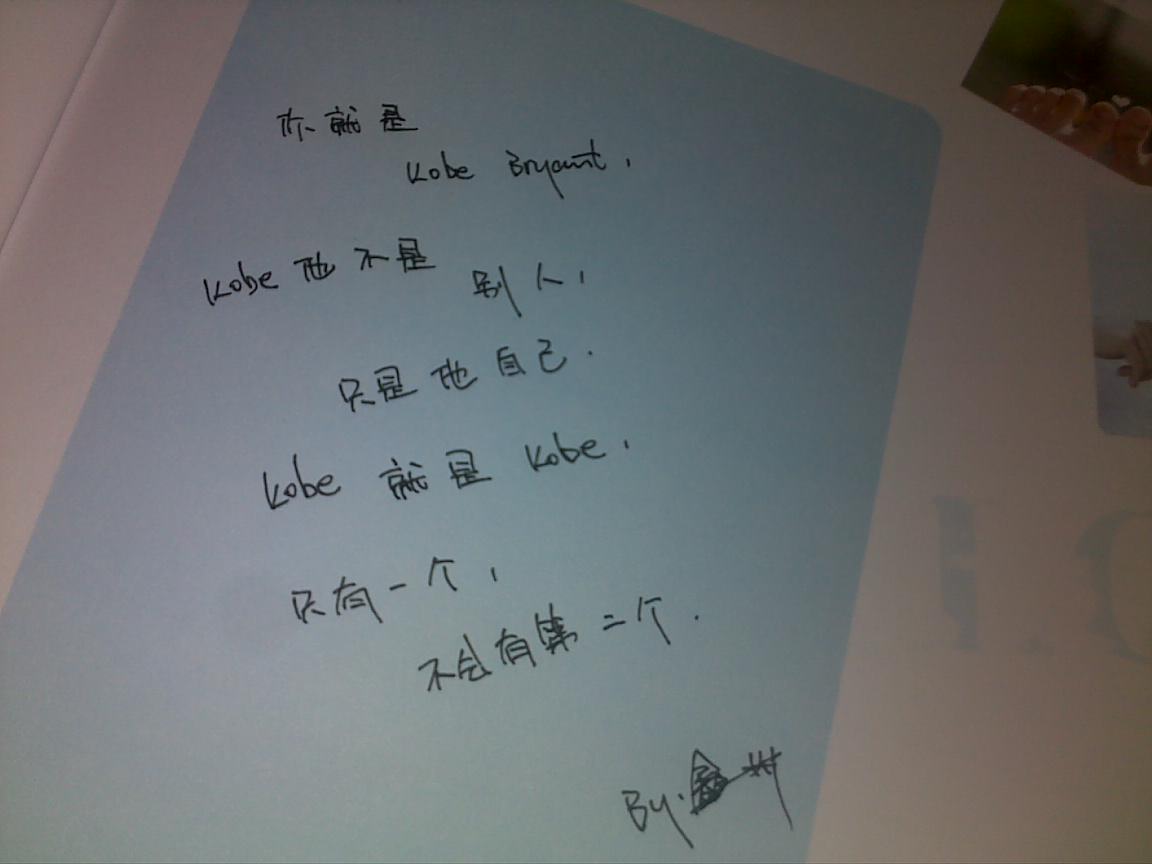 你就是
Kobe Bryant,
Kobe 他不是
别人,
只是他自己.
Kobe 就是 Kobe,
只有一个,
不会有第二个.
By.